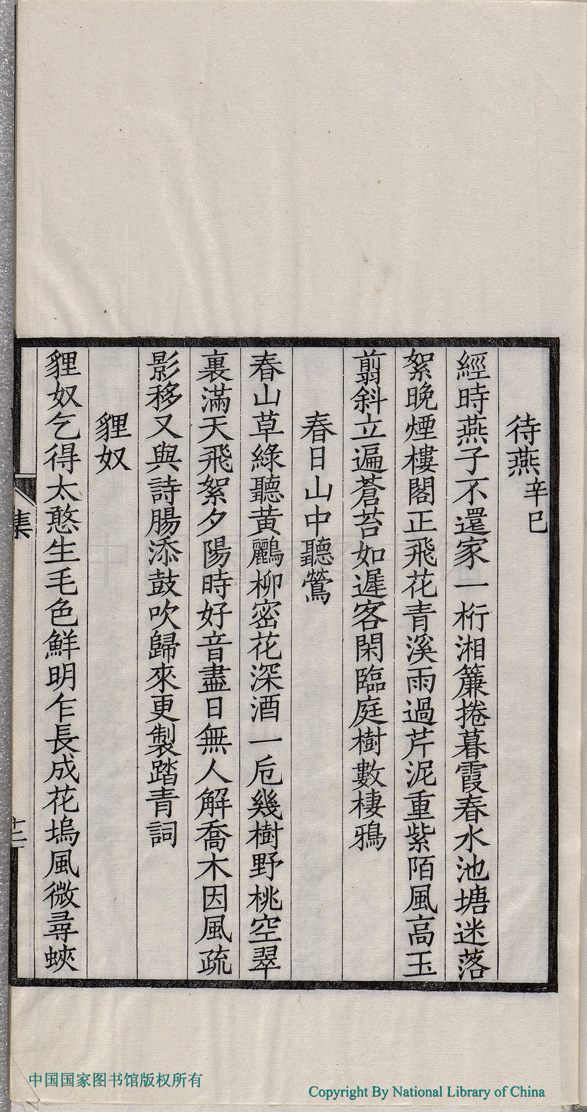 待燕辛巳
經時燕子不還家一桁湘簾捲暮霞春水池塘迷落
絮晚煙樓閣正飛花青溪雨過芹泥重紫陌風高玉
翦斜立遍蒼苔如遲客閑臨庭樹數棲鴉
春日山中聽鶯
春山草綠聽黃鸝柳密花深酒一卮幾樹野桃空翠
裏滿天飛絮夕陽時好音盡日無人解喬木因風疏
影移又與詩腸添鼓吹歸來更製踏青詞
貍奴
貍奴乞得太憨生毛色鮮明乍長成花塢風微尋蛺
集
十二
中国国家图书馆版权所有
Copyright By National Library of China